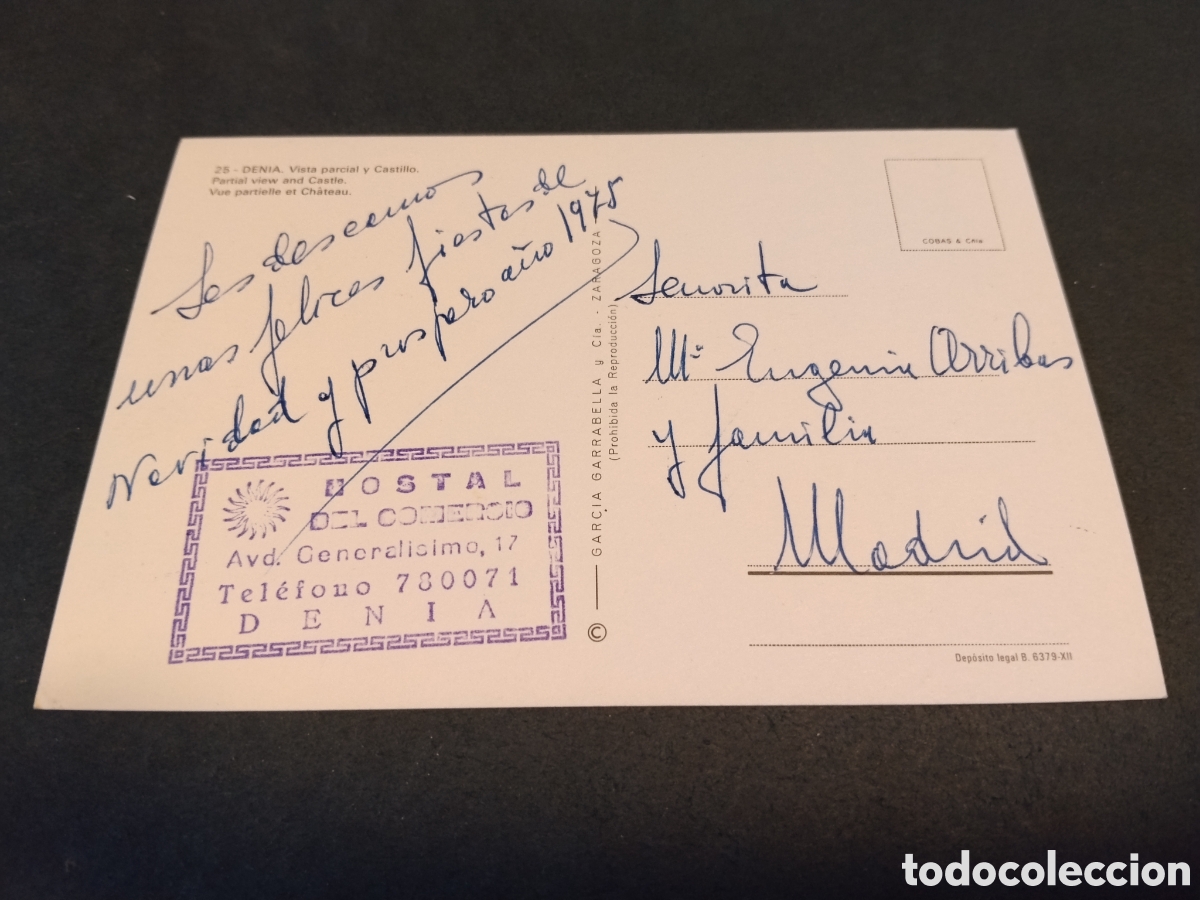 25 - DENIA. Vista parcial y Castillo.
Partial view and Castle.
Vue partielle et Château.
Les deseamos
unas felices fiestas de
Navidad y prospero año 1975
HOSTAL
DEL COMERCIO
Avd. Generalisimo, 17
Teléfono 780071
DENIA
© GARCIA GARRABELLA y Cía. - ZARAGOZA
(Prohibida la Reproducción)
COBAS & CAM
Señorita
Mª Eugenia Arribas
y familia
Madrid
Depósito legal B. 6379-XII
todocoleccion